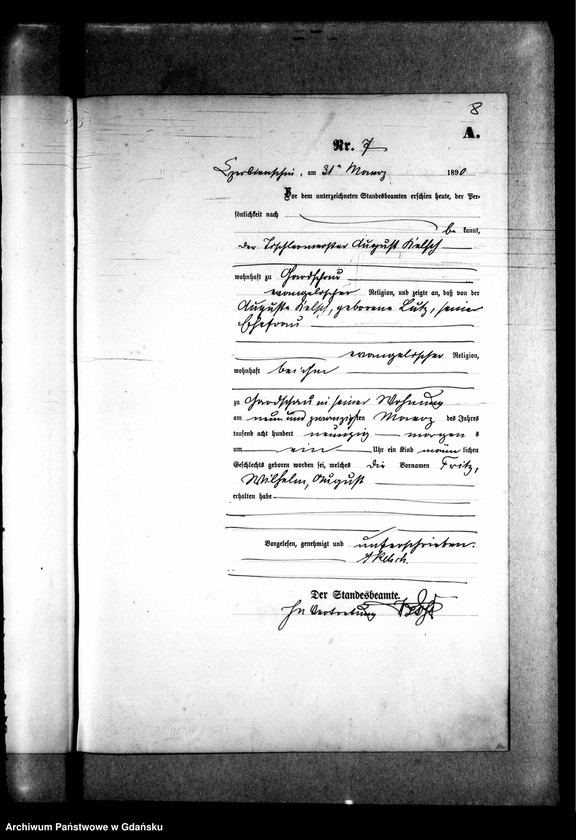 8
A.
Nr. 7
am 31ten Maerz 1890
Vor dem unterzeichneten Standesbeamten erschien heute, der Per-
sönlichkeit nach
be kannt,
der Tischlermeister August Kelsch
wohnhaft zu Gardschau
evangelischer Religion, und zeigte an, daß von der
Auguste Kelsch, geborene Lutz, seiner
Ehefrau
evangelischer Religion,
wohnhaft bei ihm
zu Gardschau in seiner Wohnung
am neun und zwanzigsten Maerz des Jahres
tausend acht hundert neunzig morgens
um ein Uhr ein Kind männlichen
Geschlechts geboren worden sei, welches die Vornamen Fritz,
Wilhelm, August
erhalten habe
Vorgelesen, genehmigt und unterschrieben.
A Kelsch.
Der Standesbeamte.
In Vertretung
Archiwum Państwowe w Gdańsku